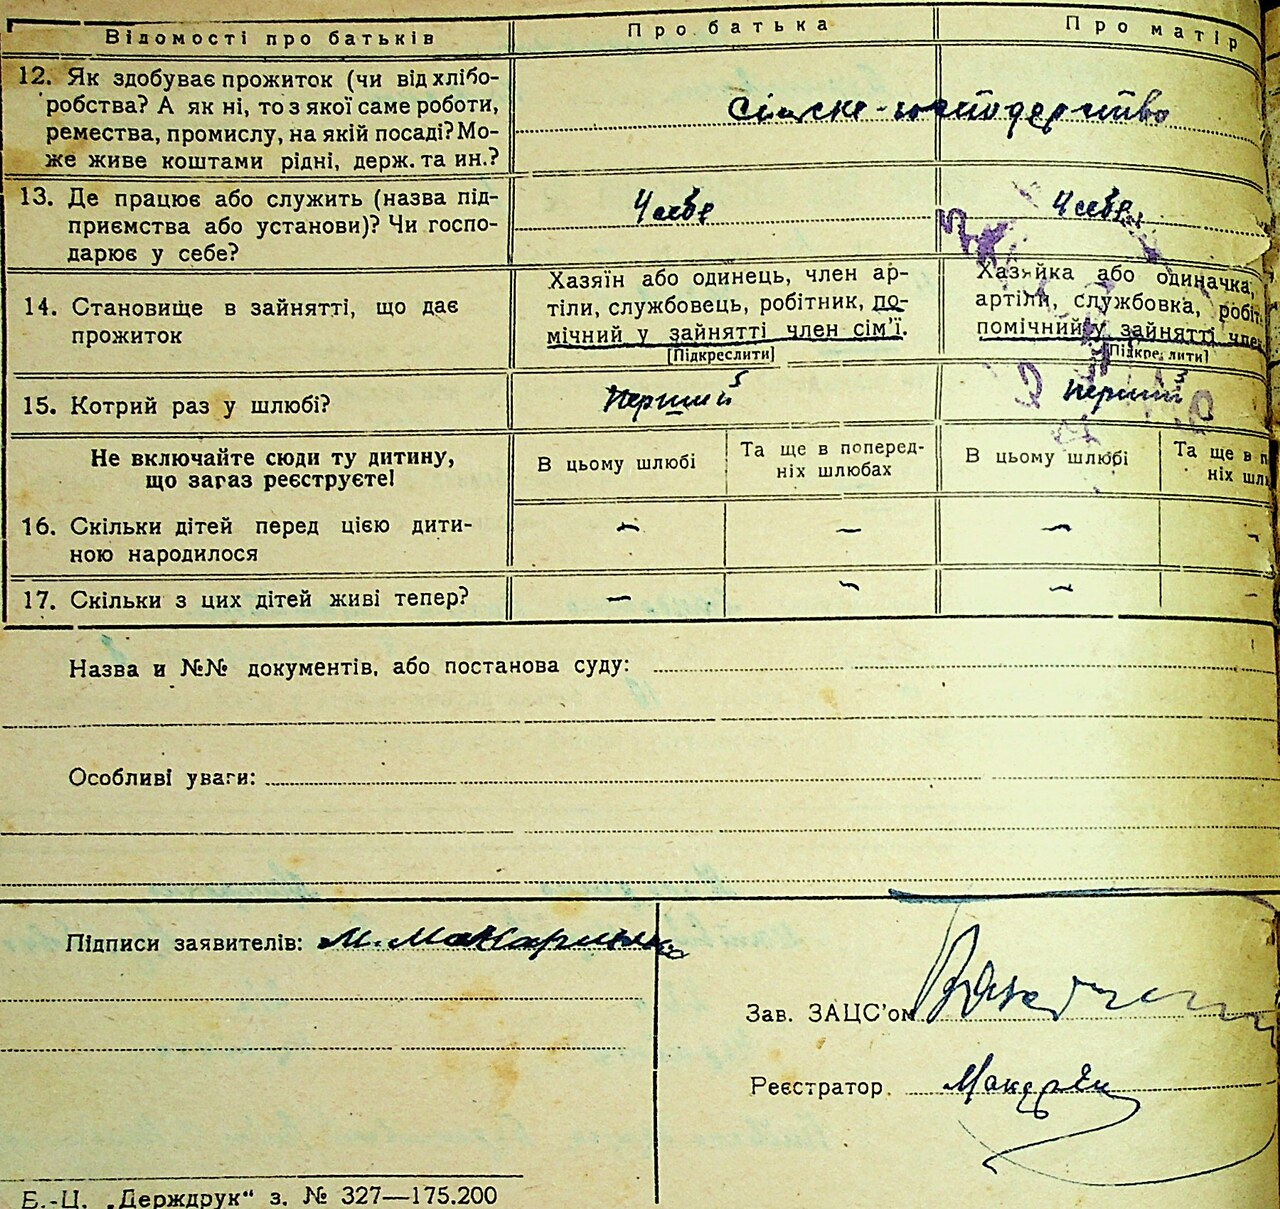 Відомості про батьків
Про батька
Про матір
12. Як здобуває прожиток (чи від хлібо-
робства? А як ні, то з якої саме роботи,
ремества, промислу, на якій посаді? Мо-
же живе коштами рідні, держ. та ин.?
сільске-господарство
13. Де працює або служить (назва під-
приємства або установи)? Чи госпо-
дарює у себе?
У себе
У себе
14. Становище в зайнятті, що дає
прожиток
Хазяїн або одинець, член ар-
тіли, службовець, робітник, по-
мічний у зайнятті член сім'ї.
[Підкреслити]
Хазяйка або одиначка,
артіли, службовка, робіт
помічний у зайнятті член
[Підкреслити]
15. Котрий раз у шлюбі?
Перший
перший
Не включайте сюди ту дитину,
що загаз реєструєте!
В цьому шлюбі
Та ще в поперед-
ніх шлюбах
В цьому шлюбі
Та ще в п
ніх шлю
16. Скільки дітей перед цією дити-
ною народилося
— — — —
17. Скільки з цих дітей живі тепер?
— — — —
Назва и №№ документів, або постанова суду:
Особливі уваги:
Підписи заявителів: М.
Зав. ЗАЦС'ом
Реєстратор
Б.-Ц. „Держдрук“ з. № 327—175.200